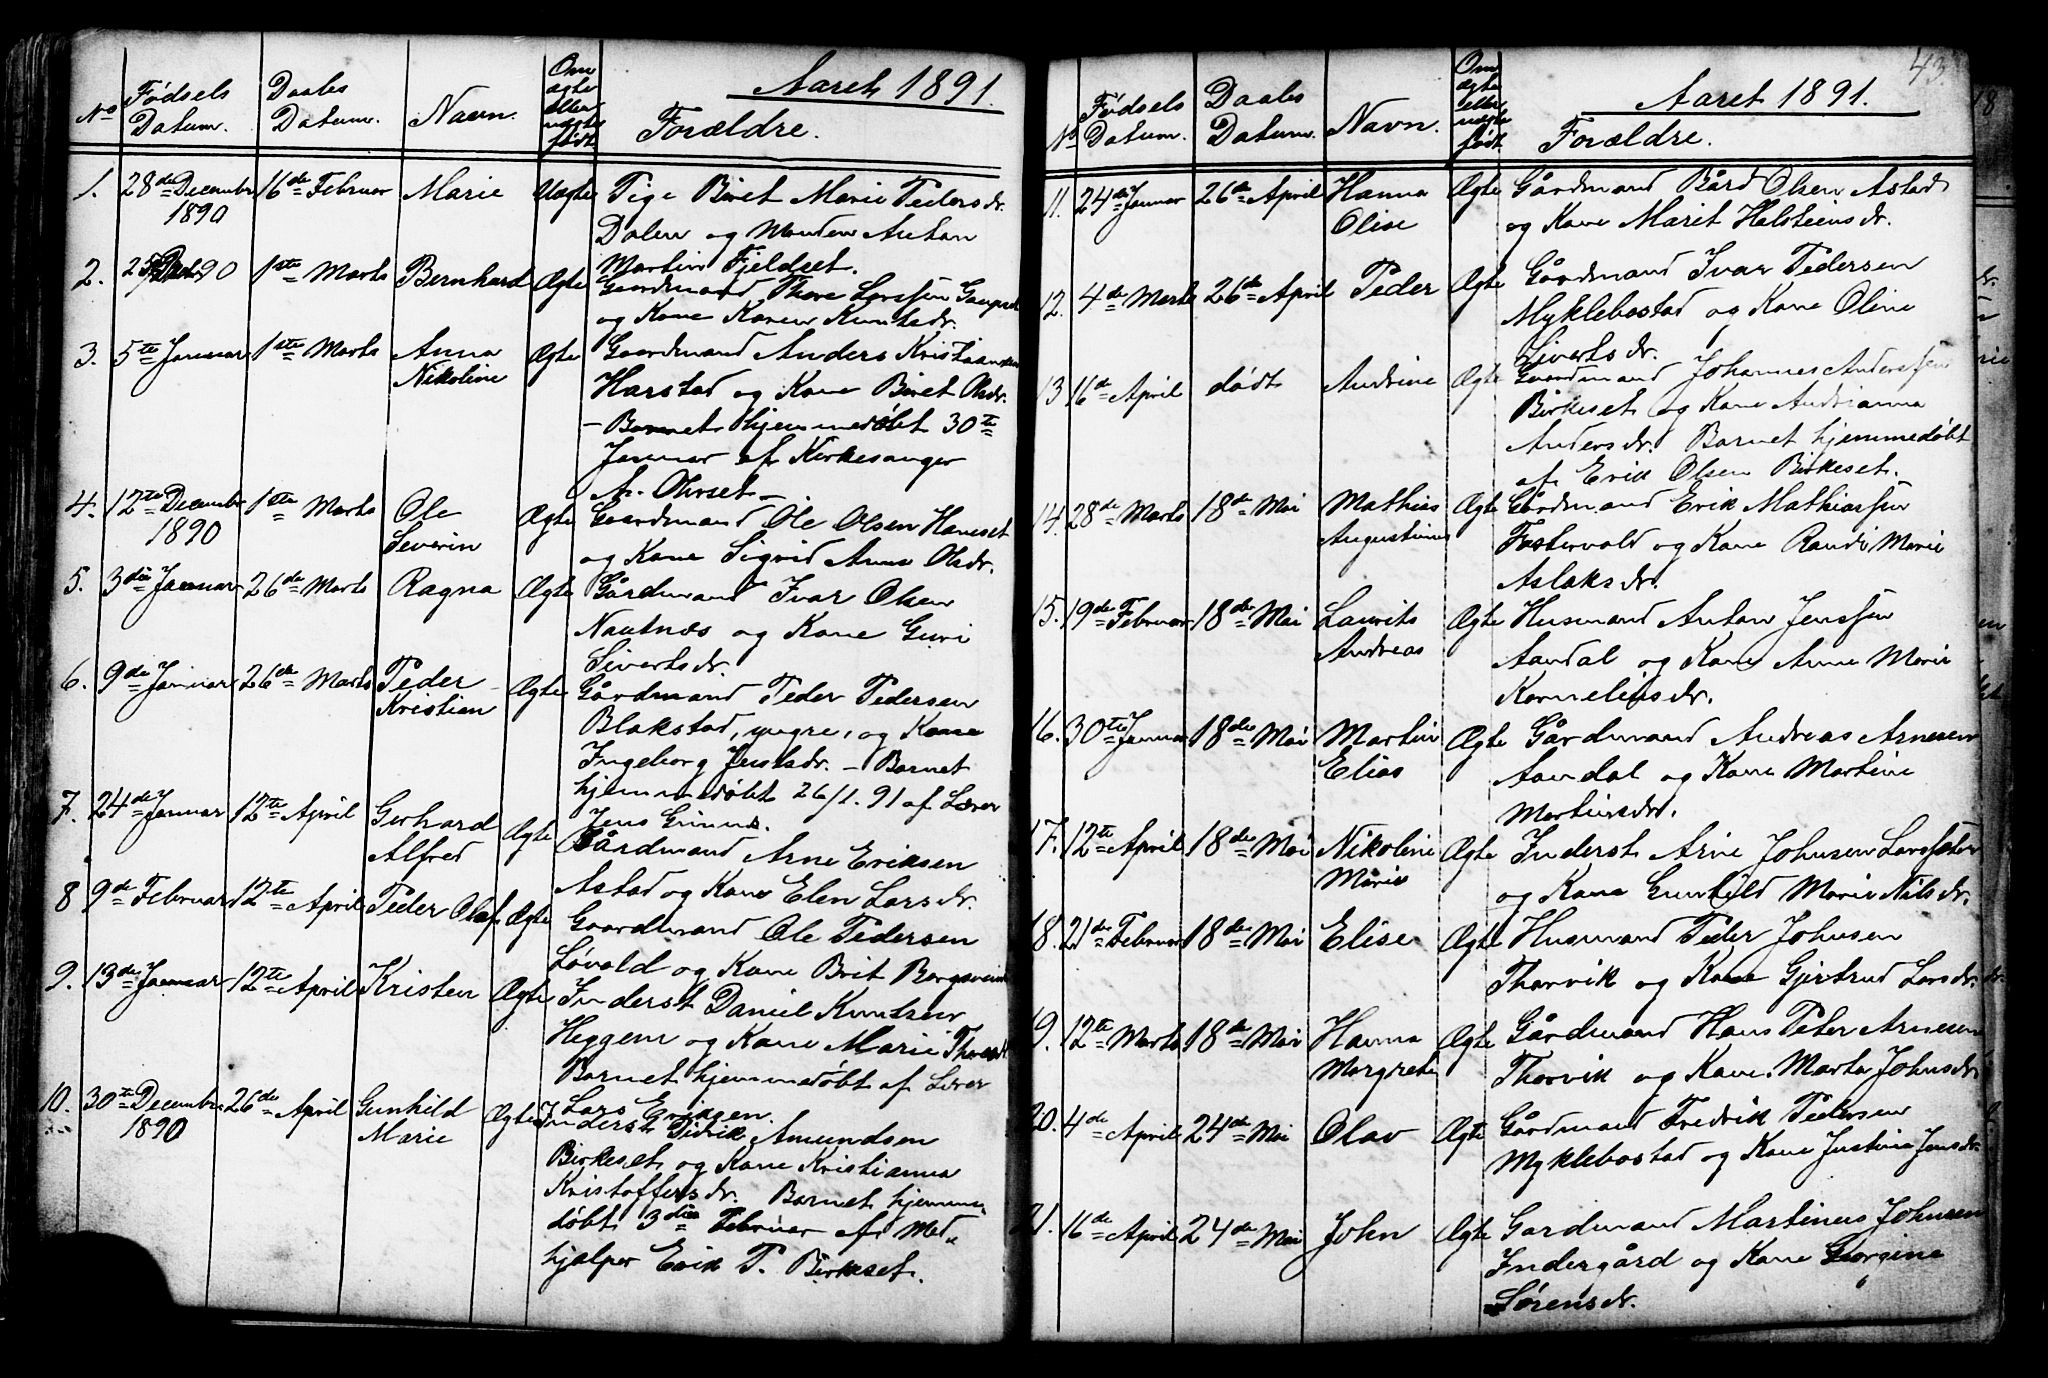 Aaret 1891.
No Fødsels Datum. Daabs Datum. Navn. Om ægte eller uægte født Forældre.
1. 28de Decembr 1890 16de Februar Marie Uægte Pige Beret Marie Pedersdr.
Dalen og Manden Anton
Martin Fjeldset.
2. 90 1ste Marts Bernhard Ægte Gaardmand Thore Larssen
og Kone Karen Knutsdr.
3. 5te Januar 1ste Marts Anna Nikoline Ægte Gaardmand Anders Kristiansen
Harstad og Kone Beret Olsdr.
- Barnet hjemmedøbt 30te
Januar af Kirkesanger
A. Ohrset -
4. 12te Decembr 1890 1ste Marts Ole Severin Ægte Gaardmand Ole Olsen Haneset
og Kone Sigrid Anna Olsdr.
5. 3die Januar 26de Marts Ragna Ægte Gårdmand Ivar Olsen
Nautnæs og Kone Guri
Sivertsdr.
6. 9de Januar 26de Marts Peder Kristian Ægte Gårdmand Peder Pedersen
Blakstad, yngre, og Kone
Ingeborg Jensdr. - Barnet
hjemmedøbt 26/1. 91 af Lærer
Jens
7. 24de Januar 12te April Gerhard Alfred Ægte Gårdmand Arne Eriksen
Astad og Kone Elen Larsdr.
8 9de Februar 12te April Peder Olaf Ægte Gaardmand Ole Pedersen
Løvold og Kone Brit
9. 13de Januar 12te April Kristen Ægte Inderst Daniel Knutsen
Heggem og Kone Marie
Barnet hjemmedøbt af Lærer
Lars Eriksen.
10. 30te Decembr. 1890 26de April Gunhild Marie Ægte Inderst Didrik Amundsen
Birkeset og Kone Kristianna
Kristoffersdr. Barnet hjemme-
døbt 3die Februar af Med-
hjælper Erik P. Birkeset.
43
Aaret 1891.
No Fødsels Datum. Daabs Datum. Navn. Om ægte eller uægte født Forældre.
11. 24de Januar 26de April Hanna Olise Ægte Gårdmand Bård Olsen Astad
og Kone Marit Halsteinsdr.
12. 4de Marts 26de April Peder Ægte Gårdmand Ivar Pedersen
Myklebostad og Kone Oline
Sivertsdr.
13 16de April dødt Andrine Ægte Gaardmand Johannes Anderssen
Birkeset og Kone Andrianna
Andersdr. Barnet hjemmedøbt
af Erik Olsen Birkeset.
14. 28de Marts 18de Mai Mathias Augustinus Ægte Gårdmand Erik Mathiassen
Fostervold og Kone Randi Marie
Aslaksdr.
15. 19de Februar 18de Mai Laurits Andreas Ægte Husmand Anton Jenssen
Aandal og Kone Anne Marie
Korneliusdr.
16. 30te Januar 18de Mai Martin Elias Ægte Gårdmand Andreas Arnesen
Aandal og Kone Martine
Martinusdr.
17. 12te April 18de Mai Nikoline Marie Ægte Inderst Arne Johnsen Larssæter
og Kone Gunhild Marie Nilsdr.
18. 21de Februar 18de Mai Elise Ægte Husmand Peder Johnsen
Thorvik og Kone Gjertrud Larsdr.
19. 12te Marts 18de Mai Hanna Margrete Ægte Gårdmand Hans Peter Arnesen
Thorvik og Kone Marta Johnsdr.
20. 4de April 24de Mai Olav Ægte Gårdmand Fredrik Pedersen
Myklebostad og Kone Justine Jensdr.
21. 16de April 24de Mai John Ægte Gardmand Martinus Johnsen
Indergård og Kone Georgine
Sørensdr.